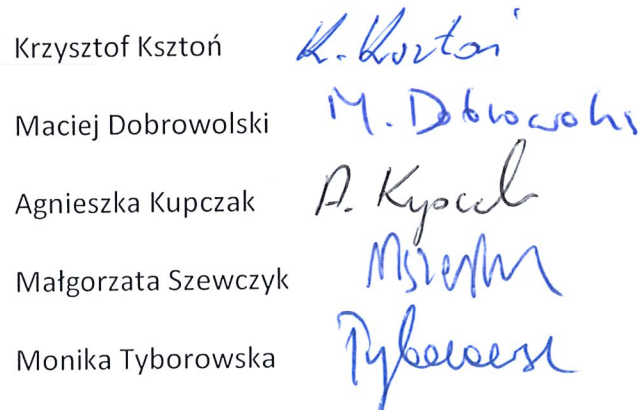 Krzysztof Ksztoń K. Ksztoń
Maciej Dobrowolski M. Dobrowolski
Agnieszka Kupczak A. Kupczak
Małgorzata Szewczyk
Monika Tyborowska